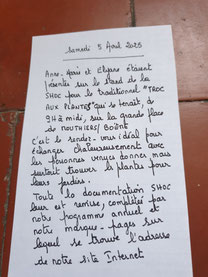 Samedi 5 Avril 2025
Anne-Marie et Elyane étaient
présentes sur le stand de la
SHOC pour le traditionnel "TROC
AUX PLANTES" qui se tenait, de
9H à midi, sur la grande place
de MOUTHIERS/BOËME
C'est le rendez-vous idéal pour
échanger chaleureusement avec
les personnes venues donner mais
surtout trouver la plantes pour
leurs jardins.
Toute la documentation SHOC
leur est remise, complétée par
notre programme annuel et
notre marque-pages sur
lequel se trouve l'adresse
de notre site Internet